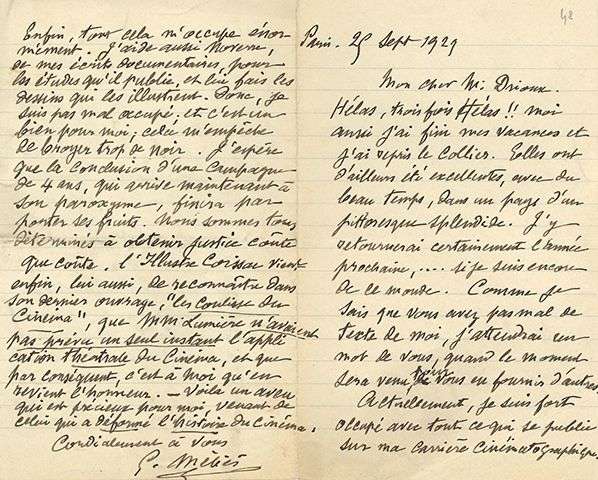 48
Paris. 25 Sept 1929
Mon cher M. Drioux
Hélas, trois fois Hélas !! moi
aussi j'ai fini mes vacances et
j'ai repris le collier. Elles ont
d'ailleurs été excellentes, avec du
beau temps, dans un pays d'un
pittoresque splendide. J'y
retournerai certainement l'année
prochaine, .... si je suis encore
de ce monde. Comme je
sais que vous avez pas mal de
texte de moi, j'attendrai un
mot de vous, quand le moment
sera venu pour vous en fournir d'autres
Actuellement, je suis fort
occupé avec tout ce qui se publie
sur ma carrière cinématographique.
Enfin, tout cela m'occupe énor-
mément. J'aide aussi
de mes écrits documentaires, pour
les études qu'il publie, et lui fais les
dessins qui les illustrent. Donc, je
suis pas mal occupé ; et c'est un
bien pour moi ; cela m'empêche
de broyer trop de noir. J'espère
que la conclusion d'une campagne
de 4 ans, qui arrive maintenant à
son paroxysme, finira par
porter ses fruits. Nous sommes tous
déterminés à obtenir justice coûte
que coûte. L'Illustre Coissac vient
enfin, lui aussi, de reconnaître dans
son dernier ouvrage, "les Coulisses du
Cinéma", que MM. Lumière n'avaient
pas prévu un seul instant l'appli
cation théâtrale du Cinéma, et que
par conséquent, c'est à moi qu'en
revient l'honneur. — Voilà un aveu
qui est précieux pour moi, venant de
celui qui a déformé l'histoire du Cinéma.
Cordialement à vous
G. Méliès